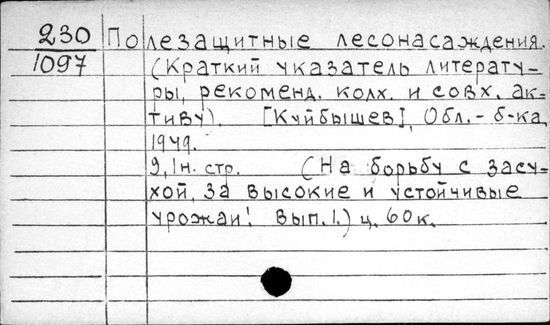 230
1097
Полезащитные лесонасаждения.
(Краткий указатель литерату-
ры, рекоменд. колх. и совх. ак-
тиву). [Куйбышев], Обл.-б-ка,
1949.
9,1н. стр. (На борьбу с засу-
хой, за высокие и устойчивые
урожаи! Вып.1.) ц. 60к.